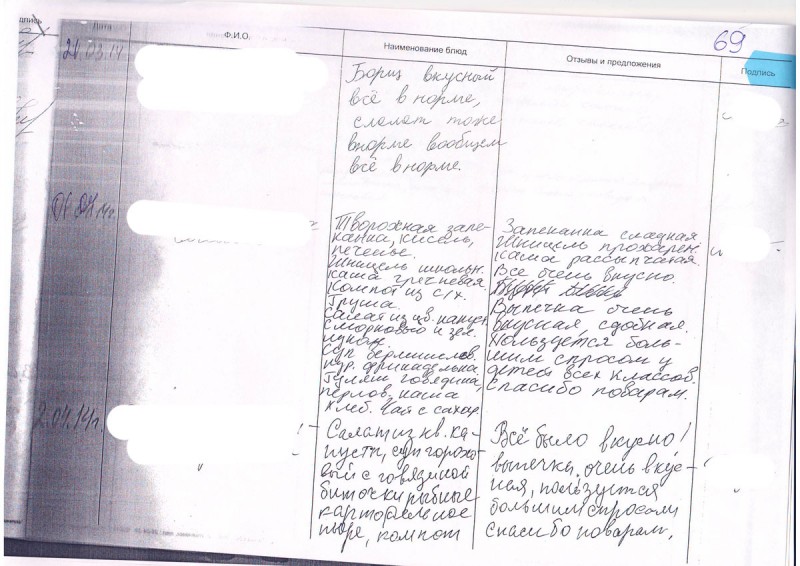 69
Дата
Ф.И.О.
Наименование блюд
Отзывы и предложения
Подпись
21.03.14
Борщ вкусный
всё в норме,
слалат тоже
внорме вообщем
всё в норме.
01.04.14г.
Творожная запе-
канка, кисель,
печенье.
Шницель школьн.
каша гречневая.
Компот из с/х.
Груша.
Салат из цв. капуст.
с морковью и зел.
луком.
Суп вермишелев.
кур. фрикаделька.
Гуляш говядина,
перлов. каша
Хлеб. Чай с сахар.
Запеканка сладкая
Шницель прожарен.
каша рассыпчатая.
Все очень вкусно.
Выпечка очень
вкусная, сдобная.
Пользуется боль-
шим спросом у
детей всех классов.
Спасибо поварам.
2.04.14г.
Салат из кв. ка-
пусты, суп горохо-
вый с говядиной
биточки рыбные
картофельное
пюре, компот
Всё было вкусно!
выпечка, очень вкус-
ная, пользуется
большим спросом
спасибо поварам.